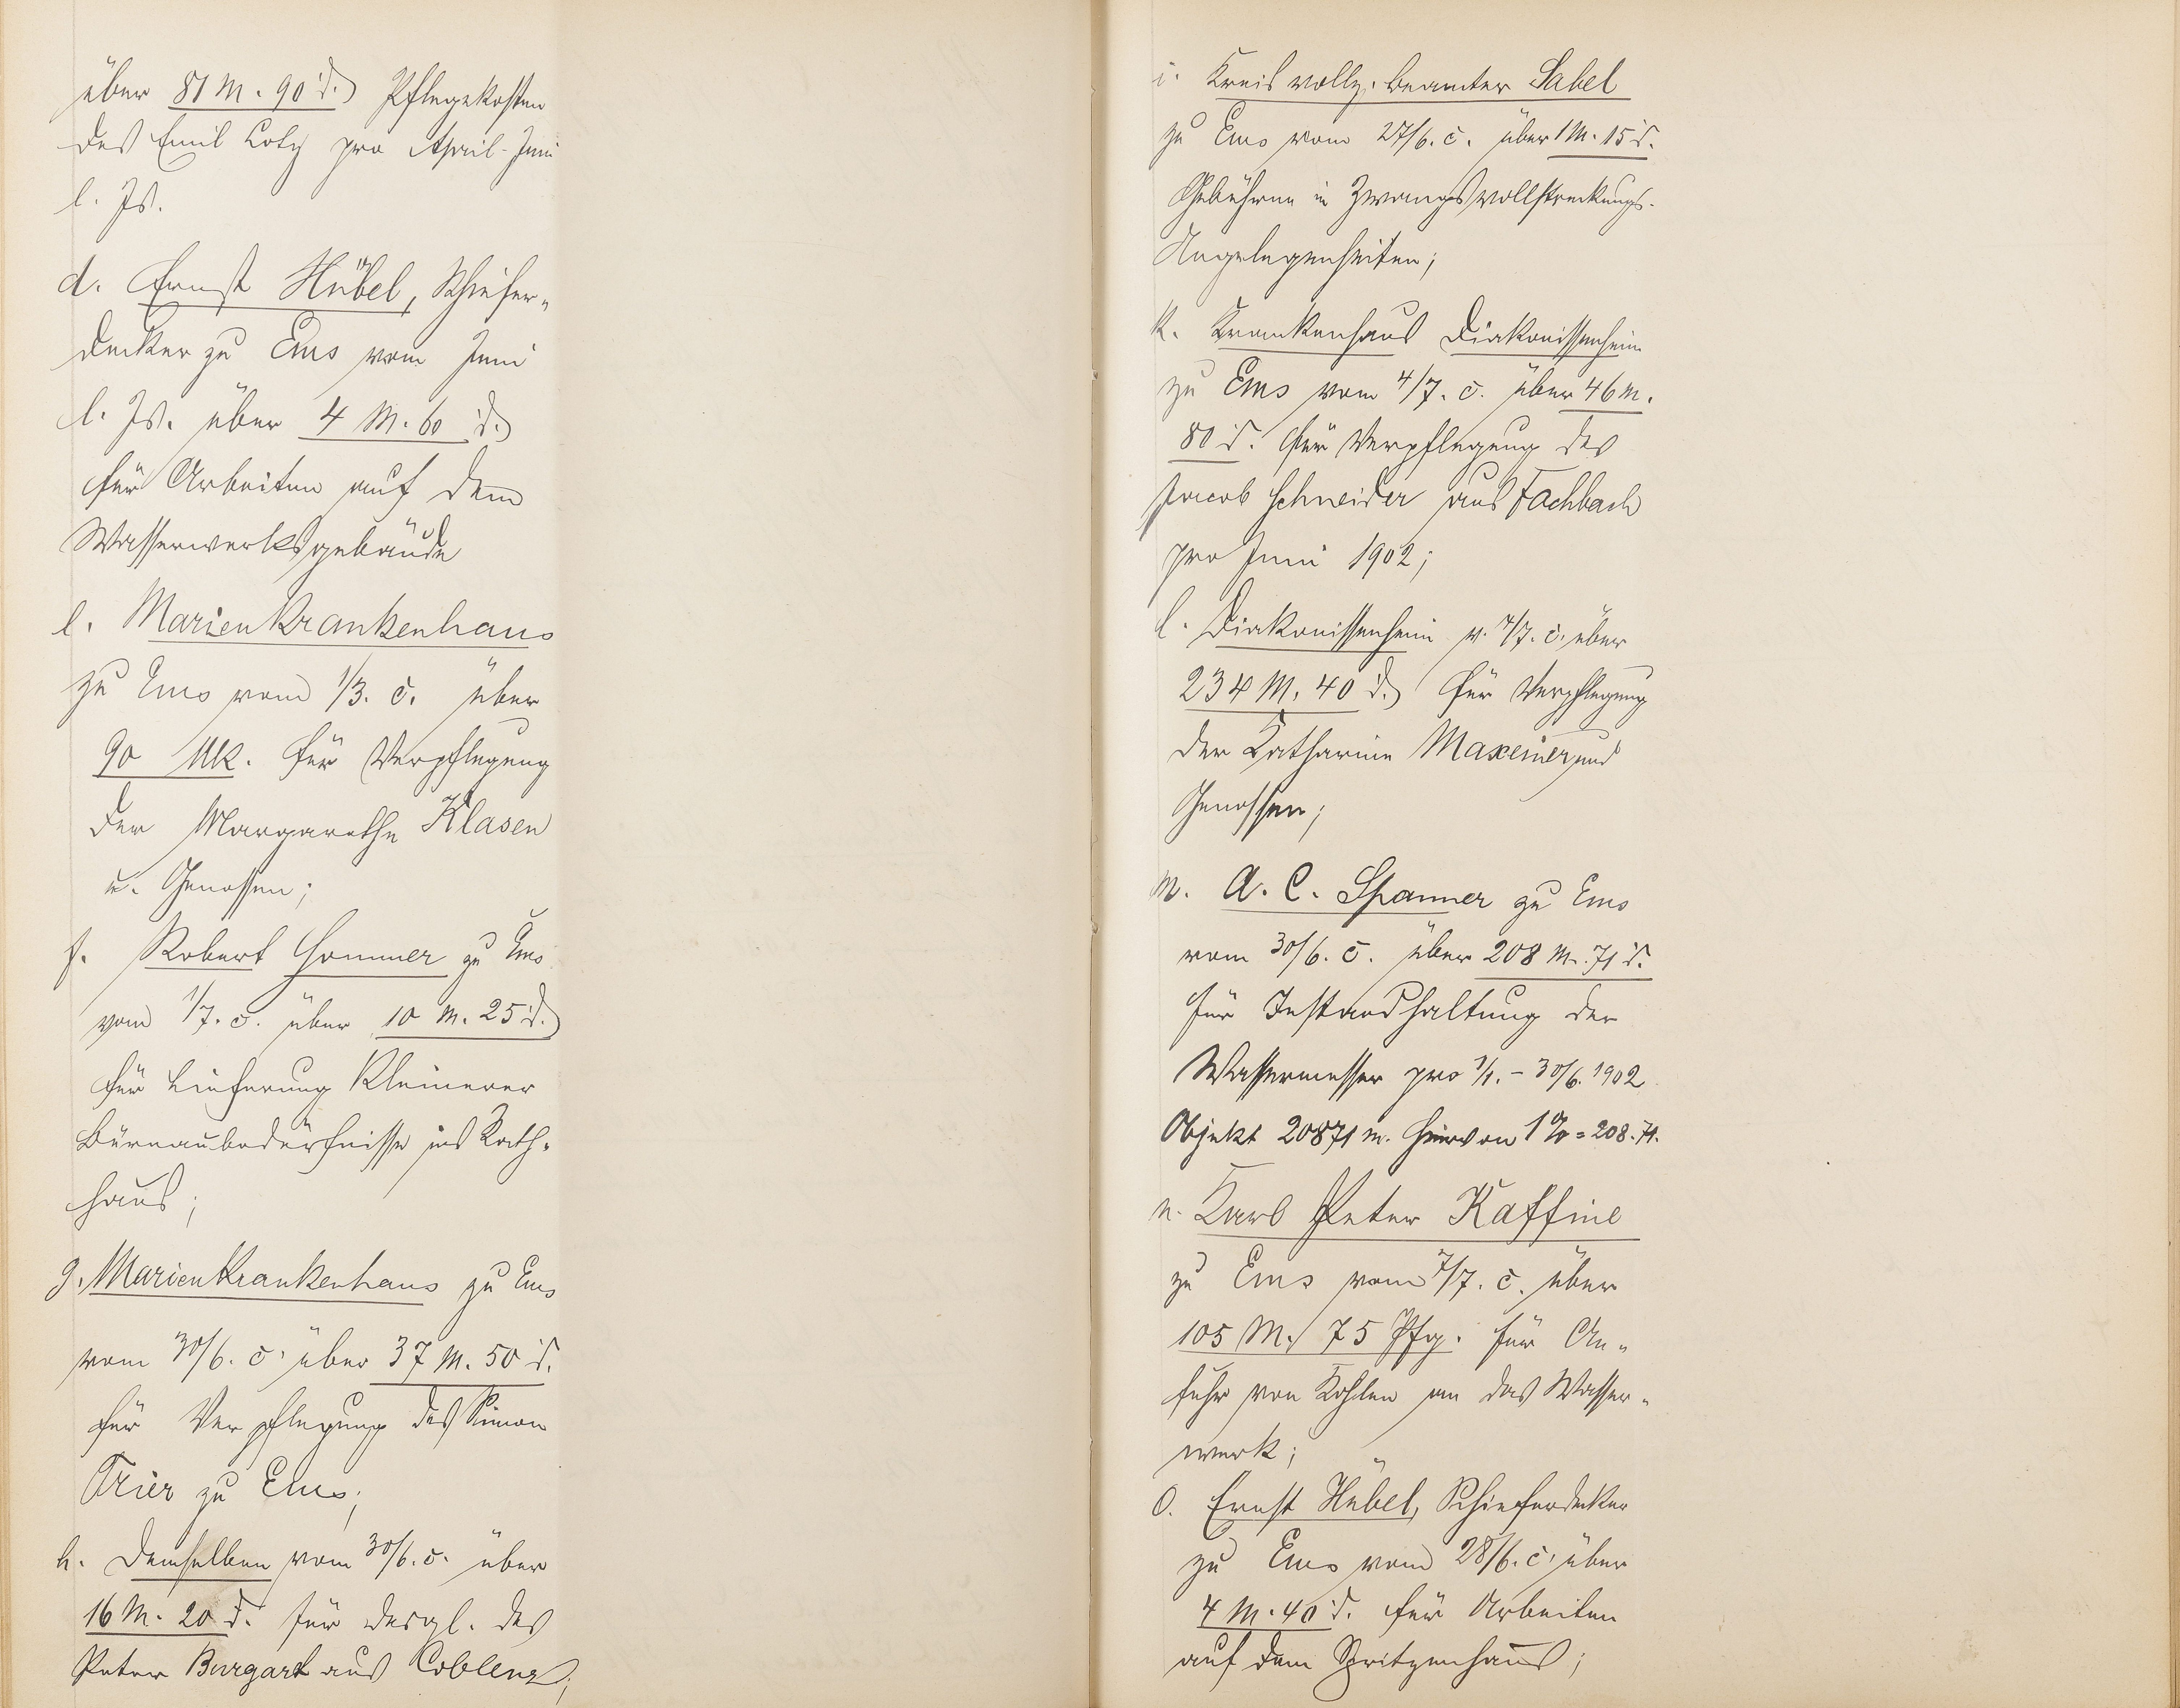 über 81 M. 90 d. Pflegekosten
des Emil Loty pro April-Juni
l. Js.
d. Ernst Hübel, Schiefer-
decker zu Ems vom Juni
l. Js. über 4 M. 60 d.
für Arbeiten auf dem
Wasserwerksgebäude
e. Marienkrankenhaus
zu Ems vom 1/3. c. über
90 Mk. für Verpflegung
der Margarethe Klasen
u. Genossen;
f. Robert Sommer zu Ems
vom 1/7. c. über 10 M. 25 d.
für Lieferung kleinerer
Büreaubedürfnisse ins Rath-
haus;
g. Marienkrankenhaus zu Ems
vom 30/6. c. über 37 M. 50 d.
für Verpflegung des Simon
Trier zu Ems;
h. Demselben vom 30/6. c. über
16 M. 20 d. für desgl. des
Peter Burgart aus Coblenz;
i. Kreisvollz. beamter Sabel
zu Ems vom 27/6. c. über 1 M. 15 d.
Gebühren in Zwangsvollstreckungs-
Angelegenheiten;
k. Krankenhaus Diakonissenheim
zu Ems vom 4/7. c. über 46 M.
80 d. für Verpflegung des
Jacob Schneider aus Fachbach
pro Juni 1902;
l. Diakonissenheim v. 4/7. c. über
234 M. 40 d. für Verpflegung
der Katharine Maxeiner und
Genossen;
m. A. C. Spanner zu Ems
vom 30/6. c. über 208 M. 71 d.
für Instandhaltung der
Wassermesser pro 1/1. - 30/6. 1902
Objekt 20871 m. hiervon 1% = 208.71.
n. Karl Peter Kaffine
zu Ems vom 7/7. c. über
105 M. 75 Pfg. für An-
fuhr von Kohlen an das Wasser-
werk;
o. Ernst Hübel, Schieferdecker
zu Ems vom 28/6. c. über
4 M. 40 d. für Arbeiten
auf dem Spritzenhaus;